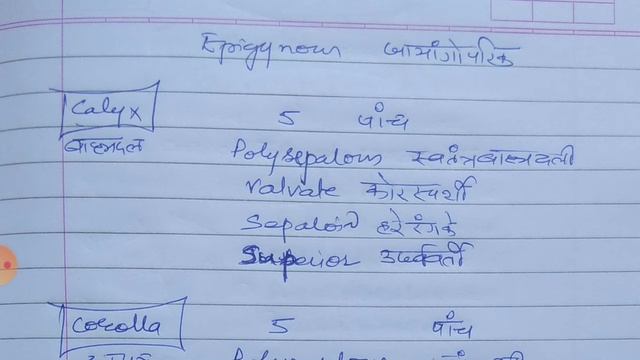 Epigynous जायांगोपरिक
Calyx 5 पांच
बाह्यदल Polysepalous स्वतंत्रबाह्यदली
Valvate कोरस्पर्शी
Sepaloid हरे रंगके
Superior उर्ध्ववर्ती
Corolla 5 पांच